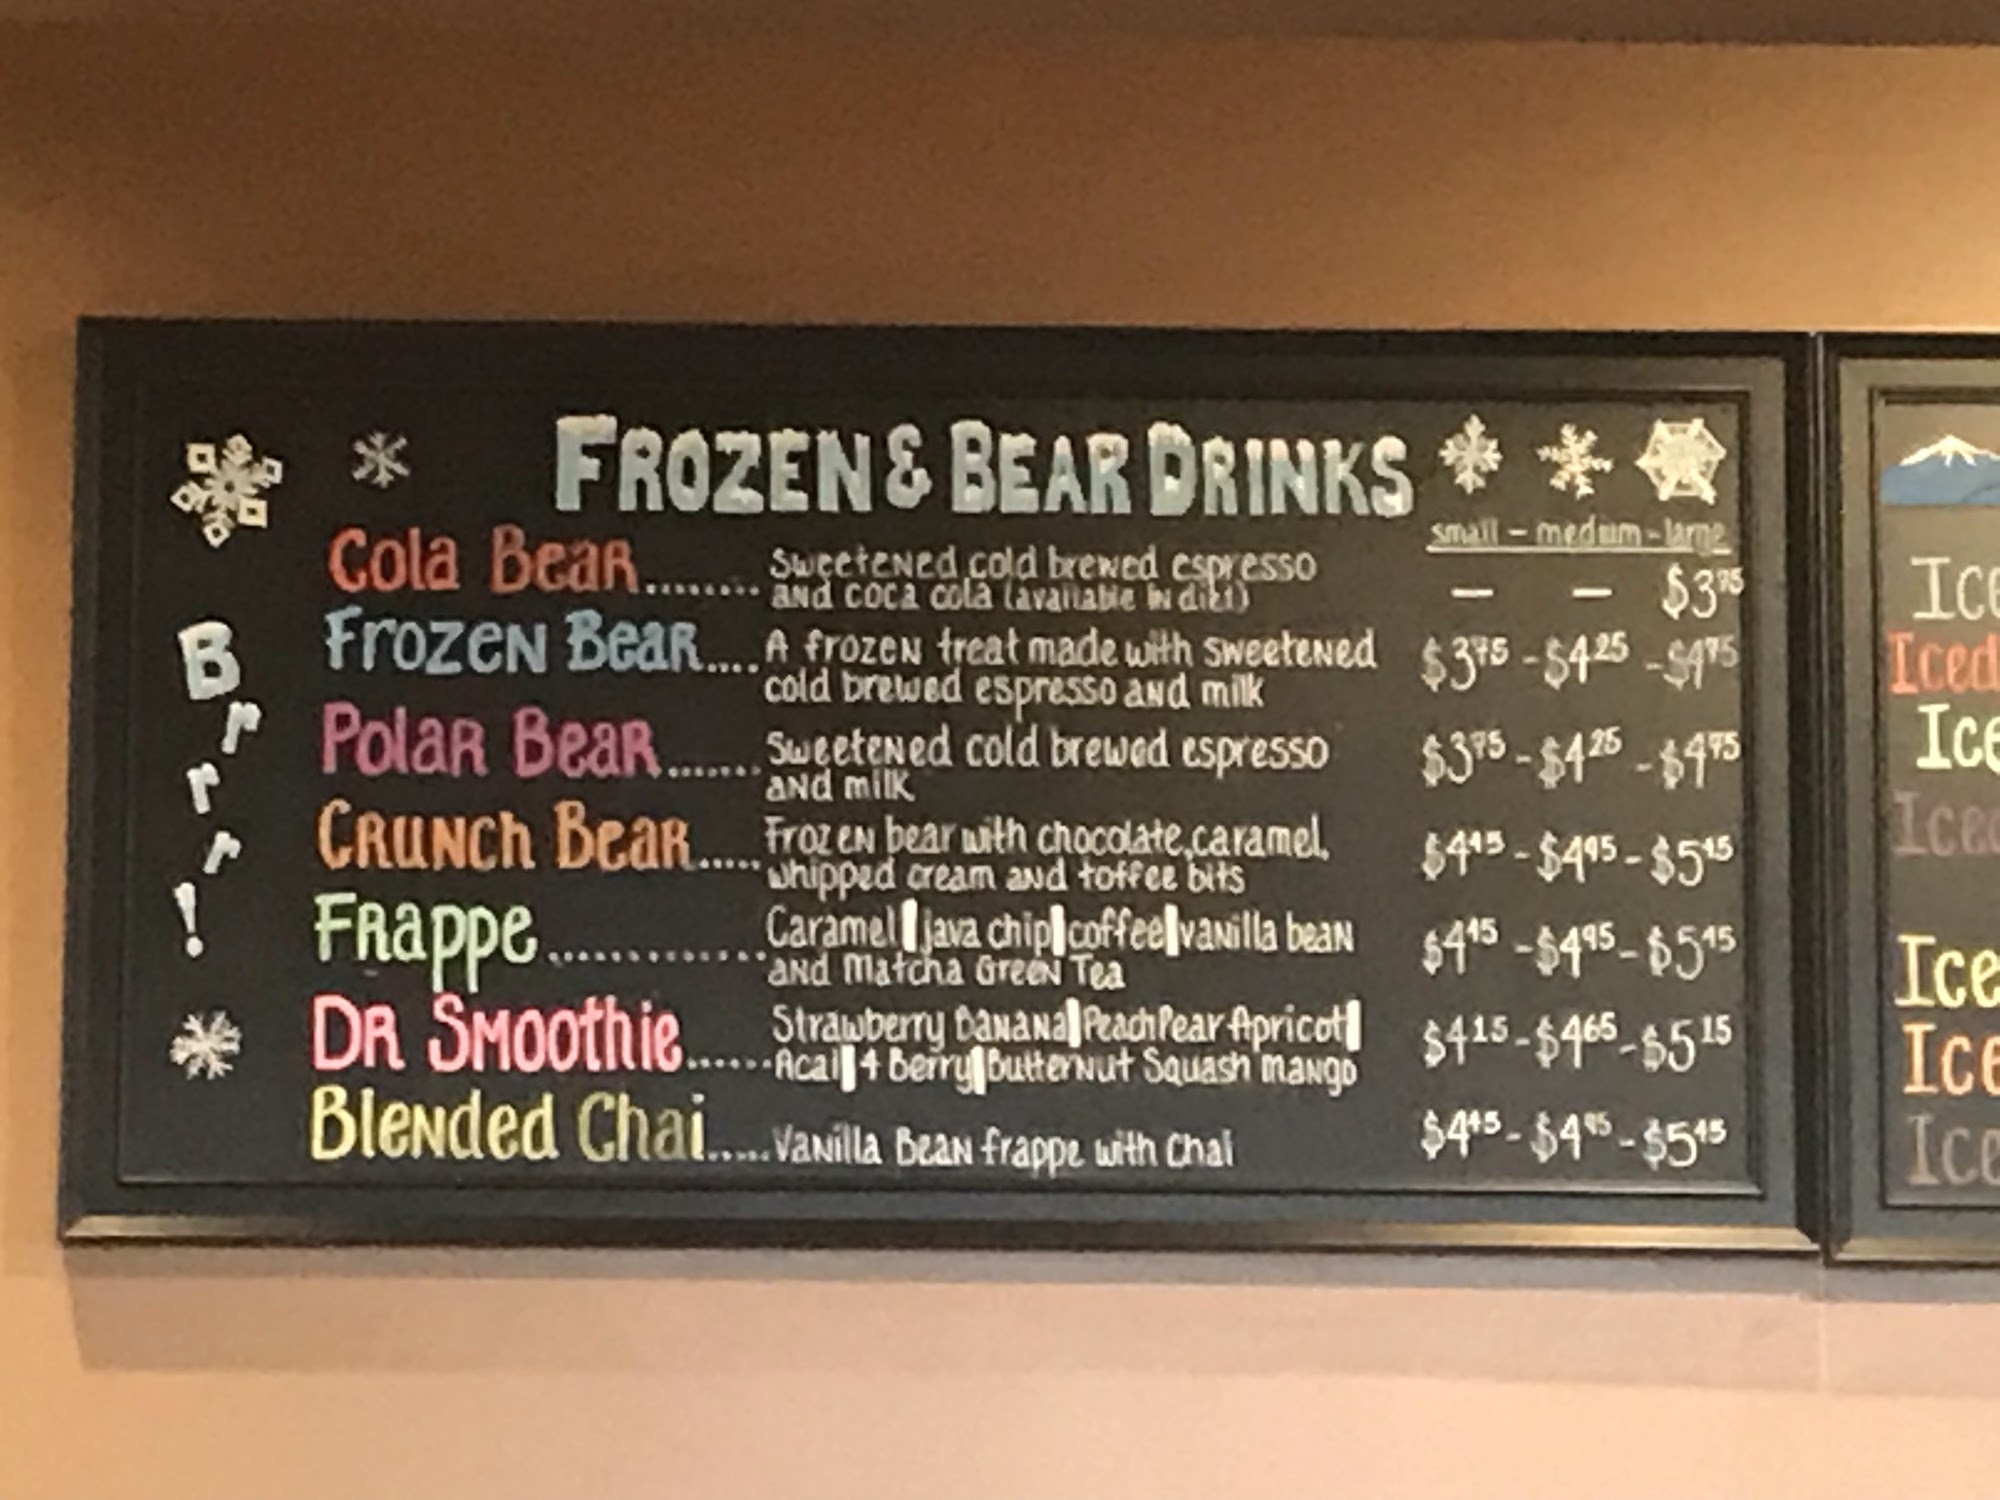 FROZEN & BEAR DRINKS
small - medium - large
Cola Bear........ Sweetened cold brewed espresso
and coca cola (available in diet) — — $3.75
Frozen Bear.... A frozen treat made with sweetened $3.75 - $4.25 - $4.75
cold brewed espresso and milk
Polar Bear....... Sweetened cold brewed espresso $3.75 - $4.25 - $4.75
and milk
Crunch Bear..... Frozen bear with chocolate, caramel, $4.45 - $4.95 - $5.45
whipped cream and toffee bits
Frappe............. Caramel | java chip | coffee | vanilla bean $4.45 - $4.95 - $5.45
and Matcha Green Tea
Dr Smoothie...... Strawberry Banana | Peach Pear Apricot | $4.15 - $4.65 - $5.15
Acai | 4 Berry | Butternut Squash mango
Blended Chai..... Vanilla Bean frappe with Chai $4.45 - $4.95 - $5.45
Brrr!
Iced